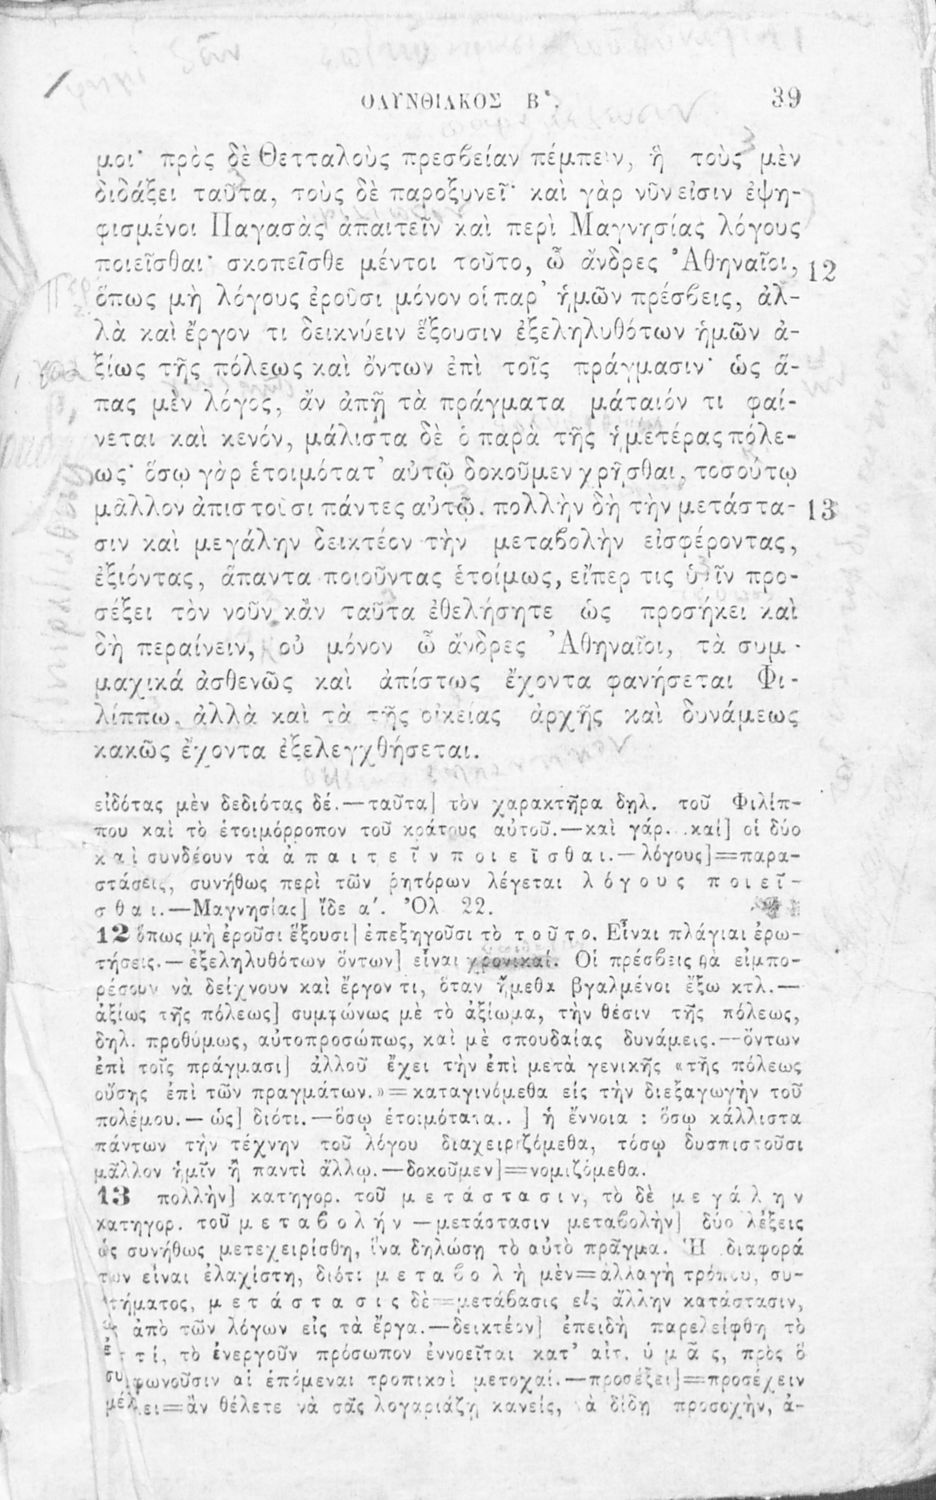 ΟΛΥΝΘΙΑΚΟΣ Β΄.
39
μοι· πρὸς δὲ Θετταλοὺς πρεσβείαν πέμπειν, ἣ τοὺς μὲν
διδάξει ταῦτα, τοὺς δὲ παροξυνεῖ· καὶ γὰρ νῦν εἰσιν ἐψη-
φισμένοι Παγασὰς ἀπαιτεῖν καὶ περὶ Μαγνησίας λόγους
ποιεῖσθαι· σκοπεῖσθε μέντοι τοῦτο, ὦ ἄνδρες Ἀθηναῖοι, 12
ὅπως μὴ λόγους ἐροῦσι μόνον οἱ παρ’ ἡμῶν πρέσβεις, ἀλ-
λὰ καὶ ἔργον τι δεικνύειν ἕξουσιν ἐξεληλυθότων ἡμῶν ἀ-
ξίως τῆς πόλεως καὶ ὄντων ἐπὶ τοῖς πράγμασιν· ὡς ἅ-
πας μὲν λόγος, ἂν ἀπῇ τὰ πράγματα μάταιόν τι φαί-
νεται καὶ κενόν, μάλιστα δὲ ὁ παρὰ τῆς ἡμετέρας πόλε-
ως· ὅσῳ γὰρ ἑτοιμότατ’ αὐτῷ δοκοῦμεν χρῆσθαι, τοσούτῳ
μᾶλλον ἀπιστοῦσι πάντες αὐτῷ. πολλὴν δὴ τὴν μετάστα- 13
σιν καὶ μεγάλην δεικτέον τὴν μεταβολὴν εἰσφέροντας,
ἐξιόντας, ἅπαντα ποιοῦντας ἑτοίμως, εἴπερ τις ὑμῖν προ-
σέξει τὸν νοῦν κἂν ταῦτα ἐθελήσητε ὡς προσήκει καὶ
δὴ περαίνειν, οὐ μόνον ὦ ἄνδρες Ἀθηναῖοι, τὰ συμ-
μαχικά ἀσθενῶς καὶ ἀπίστως ἔχοντα φανήσεται Φι-
λίππῳ, ἀλλὰ καὶ τὰ τῆς οἰκείας ἀρχῆς καὶ δυνάμεως
κακῶς ἔχοντα ἐξελεγχθήσεται.
εἰδότας μὲν δεδιότας δέ.—ταῦτα] τὸν χαρακτῆρα δηλ. τοῦ Φιλίπ-
που καὶ τὸ ἑτοιμόρροπον τοῦ κράτους αὐτοῦ.—καὶ γάρ. .καί] οἱ δύο
καὶ συνδέουν τὰ ἀπαιτεῖν ποιεῖσθαι.—λόγους]=παρα-
στάσεις, συνήθως περὶ τῶν ῥητόρων λέγεται λόγους ποιεῖ-
σθαι.—Μαγνησίας] ἴδε α΄. Ὀλ 22.
12 ὅπως μὴ ἐροῦσι ἕξουσι] ἐπεξηγοῦσι τὸ τοῦτο. Εἶναι πλάγιαι ἐρω-
τήσεις.—ἐξεληλυθότων ὄντων] εἶναι χρονικαί. Οἱ πρέσβεις θὰ εἰμπο-
ρέσουν νὰ δείχνουν καὶ ἔργον τι, ὅταν ἤμεθα βγαλμένοι ἔξω κτλ.—
ἀξίως τῆς πόλεως] συμφώνως μὲ τὸ ἀξίωμα, τὴν θέσιν τῆς πόλεως,
δηλ. προθύμως, αὐτοπροσώπως, καὶ μὲ σπουδαίας δυνάμεις.—ὄντων
ἐπὶ τοῖς πράγμασι] ἀλλοῦ ἔχει τὴν ἐπὶ μετὰ γενικῆς «τῆς πόλεως
οὔσης ἐπὶ τῶν πραγμάτων.»=καταγινόμεθα εἰς τὴν διεξαγωγὴν τοῦ
πολέμου.—ὡς] διότι.—ὅσῳ ἑτοιμότατα..] ἡ ἔννοια : ὅσῳ κάλλιστα
πάντων τὴν τέχνην τοῦ λόγου διαχειριζόμεθα, τόσῳ δυσπιστοῦσι
μᾶλλον ἡμῖν ἢ παντὶ ἄλλῳ.—δοκοῦμεν]=νομιζόμεθα.
13 πολλὴν] κατηγορ. τοῦ μετάστασιν, τὸ δὲ μεγάλην
κατηγορ. τοῦ μεταβολήν—μετάστασιν μεταβολὴν] δύο λέξεις
ὡς συνήθως μετεχειρίσθη, ἵνα δηλώσῃ τὸ αὐτὸ πρᾶγμα. Ἡ διαφορά
των εἶναι ἐλαχίστη, διότι μεταβολὴ μὲν=ἀλλαγὴ τρόπου, συ-
στήματος, μετάστασις δὲ=μετάβασις εἰς ἄλλην κατάστασιν,
ὡς ἀπὸ τῶν λόγων εἰς τὰ ἔργα.—δεικτέον] ἐπειδὴ παρελείφθη τὸ
ἐστί, τὸ ἐνεργοῦν πρόσωπον ἐννοεῖται κατ’ αἰτ. ὑμᾶς, πρὸς ὃ
συμφωνοῦσιν αἱ ἑπόμεναι τροπικαὶ μετοχαί.—προσέξει]=προσέχειν
μέλλει=ἂν θέλετε νὰ σᾶς λογαριάζῃ κανείς, νὰ δίδῃ προσοχὴν, ἀ-